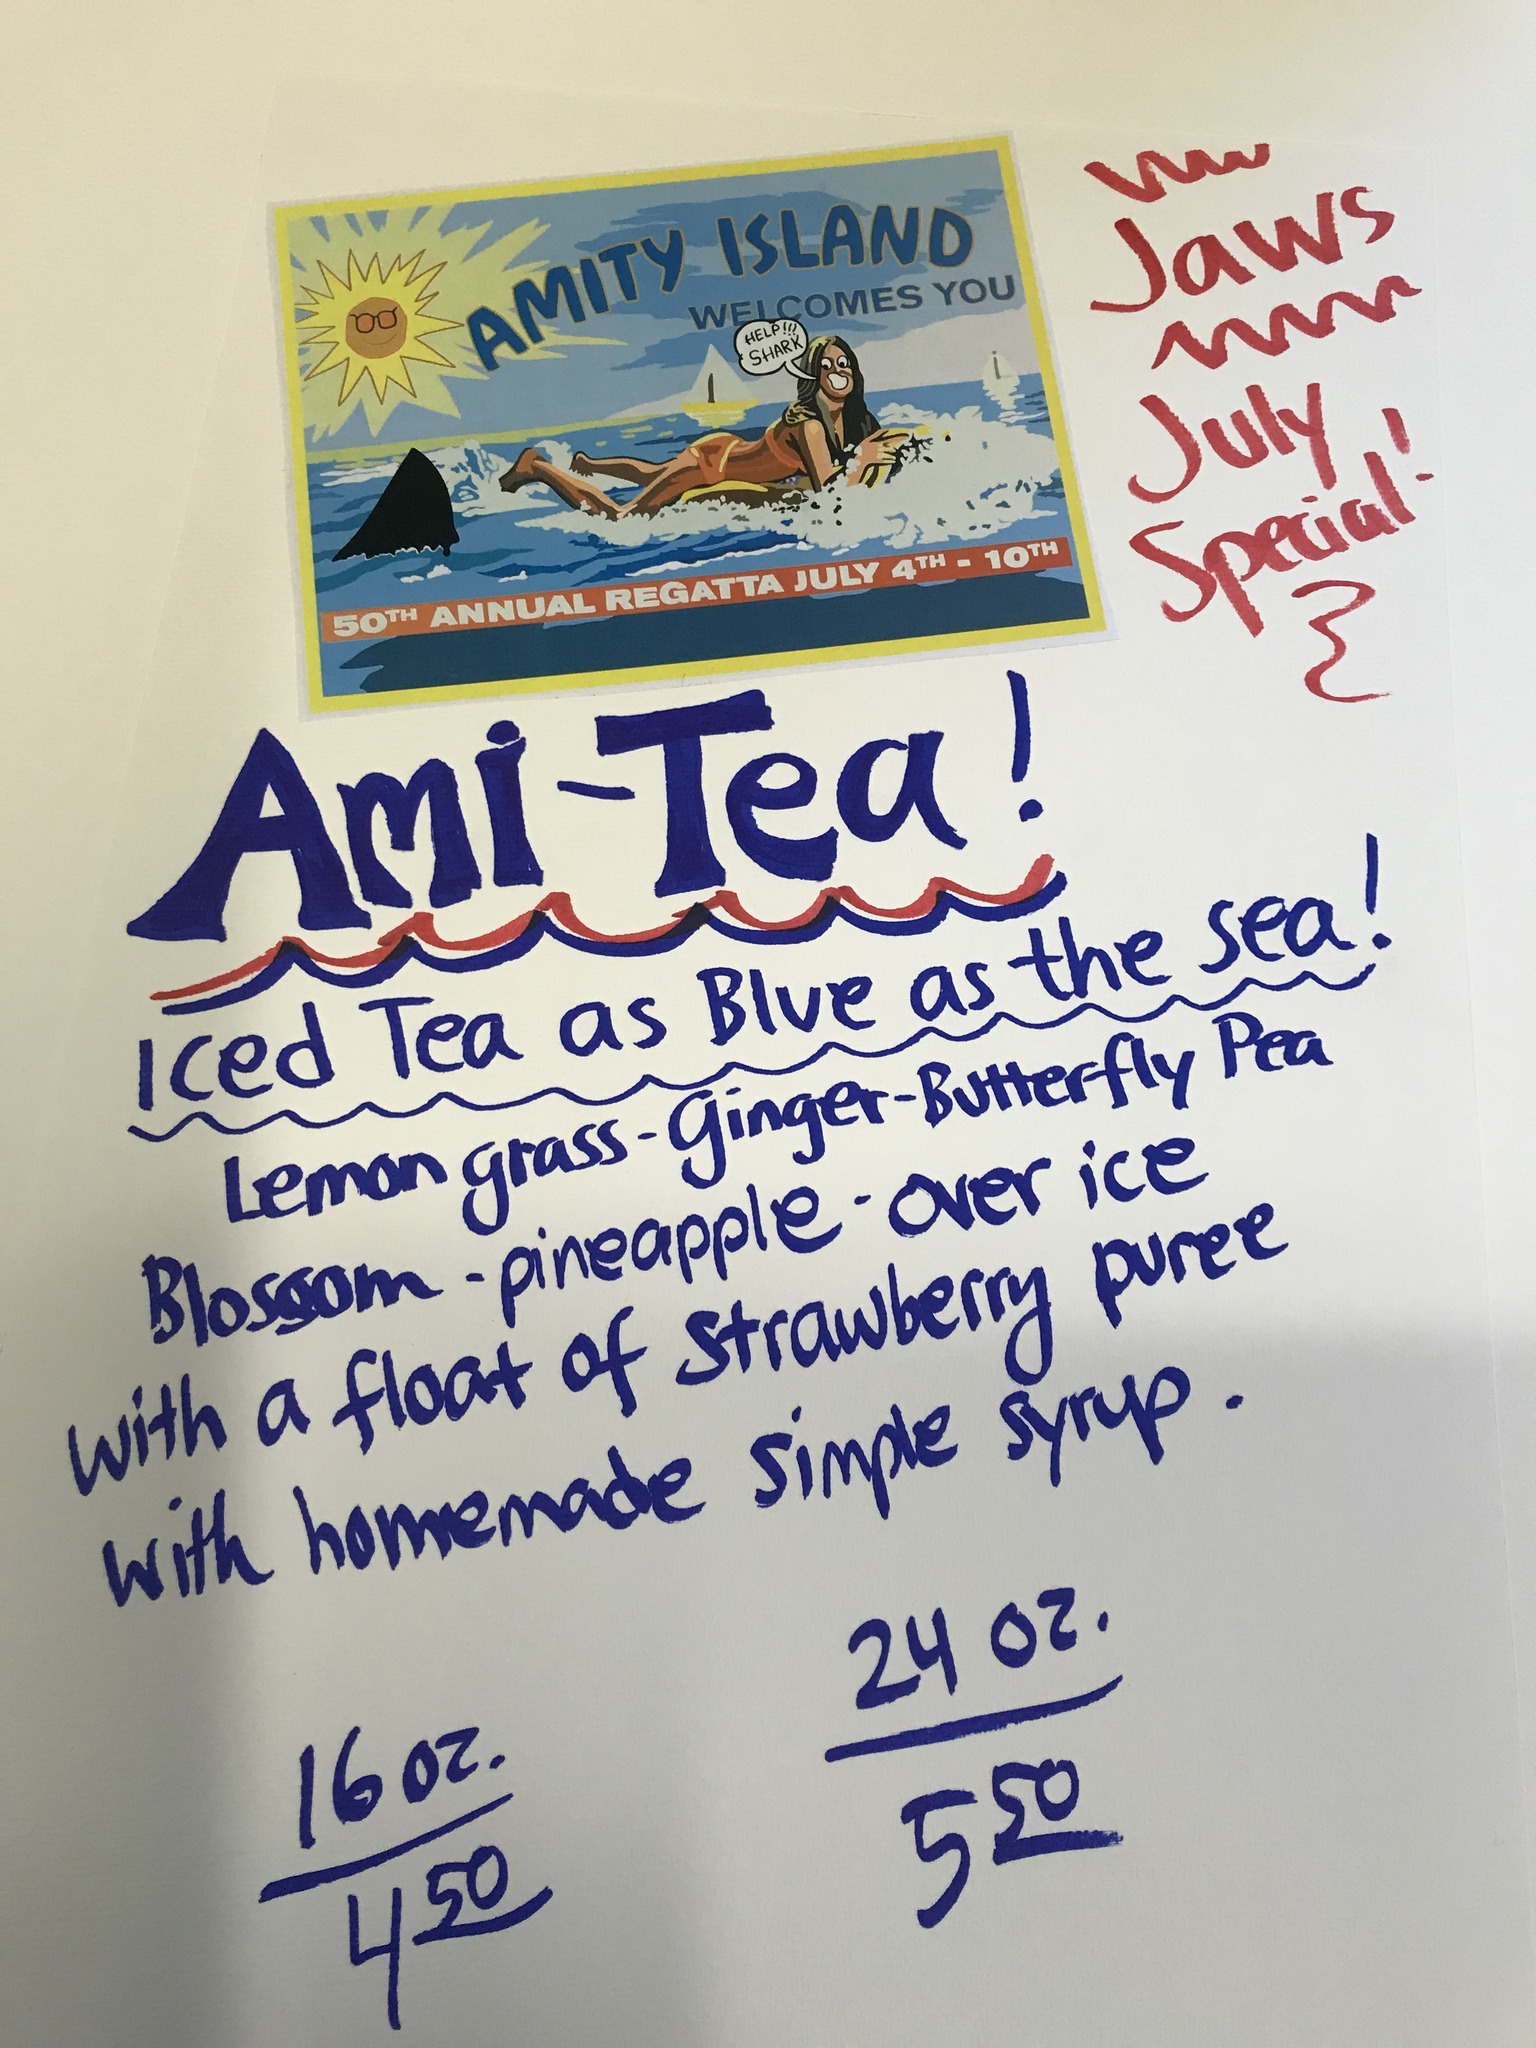 AMITY ISLAND
WELCOMES YOU
HELP!!!
SHARK
50TH ANNUAL REGATTA JULY 4TH - 10TH
Jaws
July
Special!
Ami-Tea!
Iced Tea as Blue as the sea!
Lemon grass-Ginger-Butterfly Pea
Blossom -pineapple - over ice
with a float of strawberry puree
with homemade simple syrup.
16 oz.
4 50
24 oz.
5 50